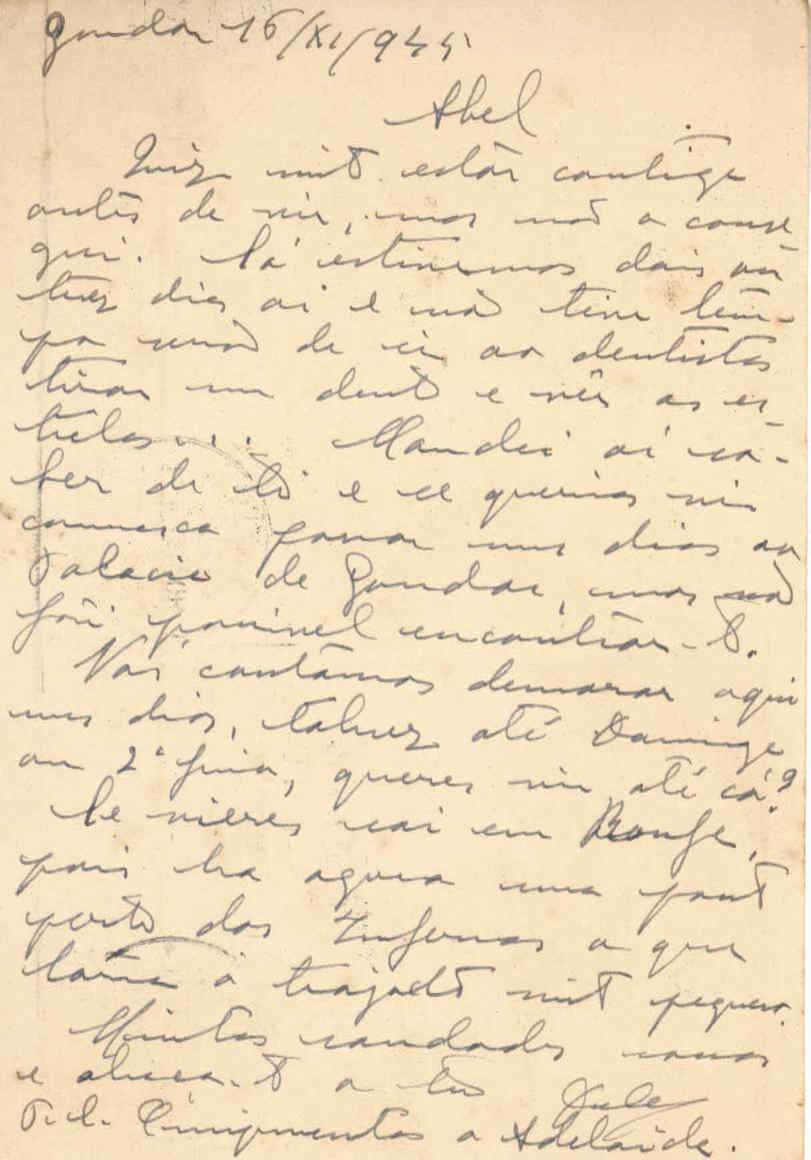 Gondar 15/XI/945
Abel
Quiz muito estar contigo
antes de vir, mas não o conse
gui. Só estivemos dois ou
trez dias aí e não tive tem-
po senão de ir ao dentista
tirar um dente e vêr as es
trelas... Mandei aí sa-
ber de ti e se querias vir
connosco passar uns dias ao
Palacio de Gondar, mas não
foi possivel encontrar-te.
Nós contâmos demorar aqui
uns dias, talvez até Domingo
ou 2ª feira, queres vir até cá?
Se vieres sai em Ronfe,
pois ha agora uma ponte
perto dos Infernos o que
torna o trajecto muito pequeno.
Muitas saudades nossas
e abraça-te o teu
P.S. Cumprimentos a Adelaide.